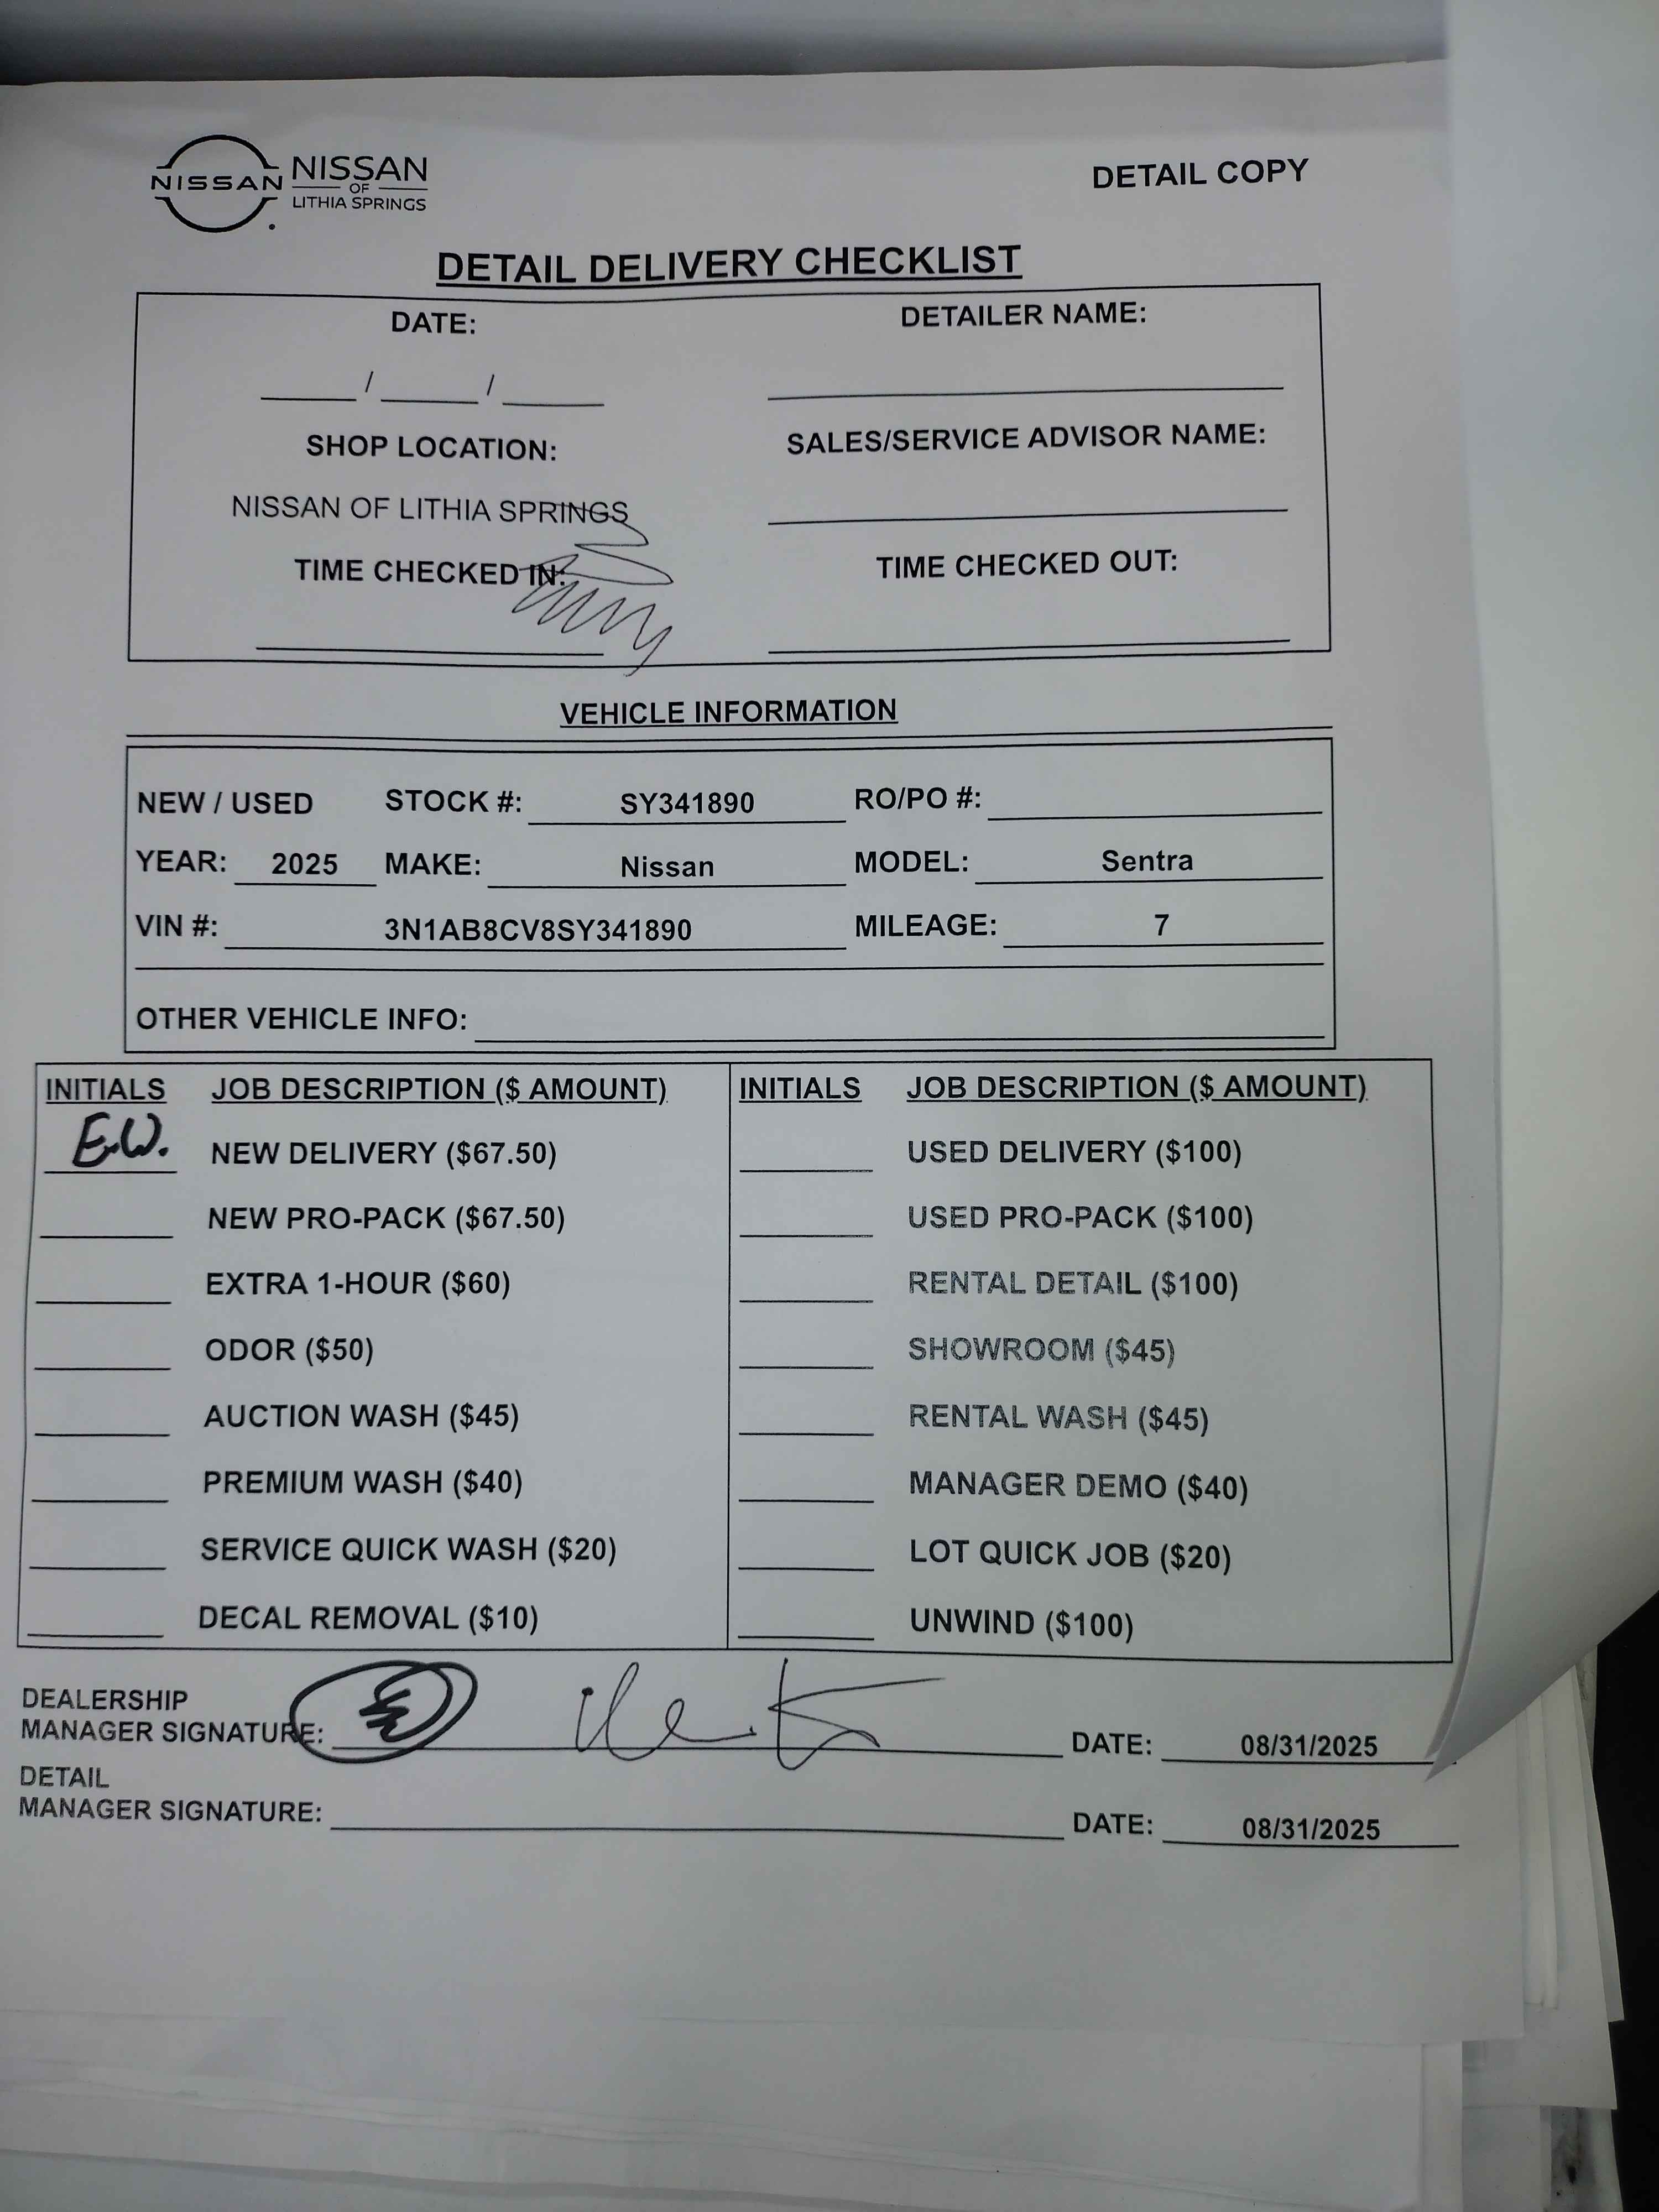 NISSAN
NISSAN
OF
LITHIA SPRINGS
DETAIL COPY
DETAIL DELIVERY CHECKLIST
DATE:
DETAILER NAME:
____/____/____
SHOP LOCATION:
SALES/SERVICE ADVISOR NAME:
NISSAN OF LITHIA SPRINGS
TIME CHECKED IN:
TIME CHECKED OUT:
VEHICLE INFORMATION
NEW / USED STOCK #: SY341890 RO/PO #:
YEAR: 2025 MAKE: Nissan MODEL: Sentra
VIN #: 3N1AB8CV8SY341890 MILEAGE: 7
OTHER VEHICLE INFO:
INITIALS JOB DESCRIPTION ($ AMOUNT) INITIALS JOB DESCRIPTION ($ AMOUNT)
E.W. NEW DELIVERY ($67.50) USED DELIVERY ($100)
NEW PRO-PACK ($67.50) USED PRO-PACK ($100)
EXTRA 1-HOUR ($60) RENTAL DETAIL ($100)
ODOR ($50) SHOWROOM ($45)
AUCTION WASH ($45) RENTAL WASH ($45)
PREMIUM WASH ($40) MANAGER DEMO ($40)
SERVICE QUICK WASH ($20) LOT QUICK JOB ($20)
DECAL REMOVAL ($10) UNWIND ($100)
DEALERSHIP
MANAGER SIGNATURE: DATE: 08/31/2025
DETAIL
MANAGER SIGNATURE: DATE: 08/31/2025